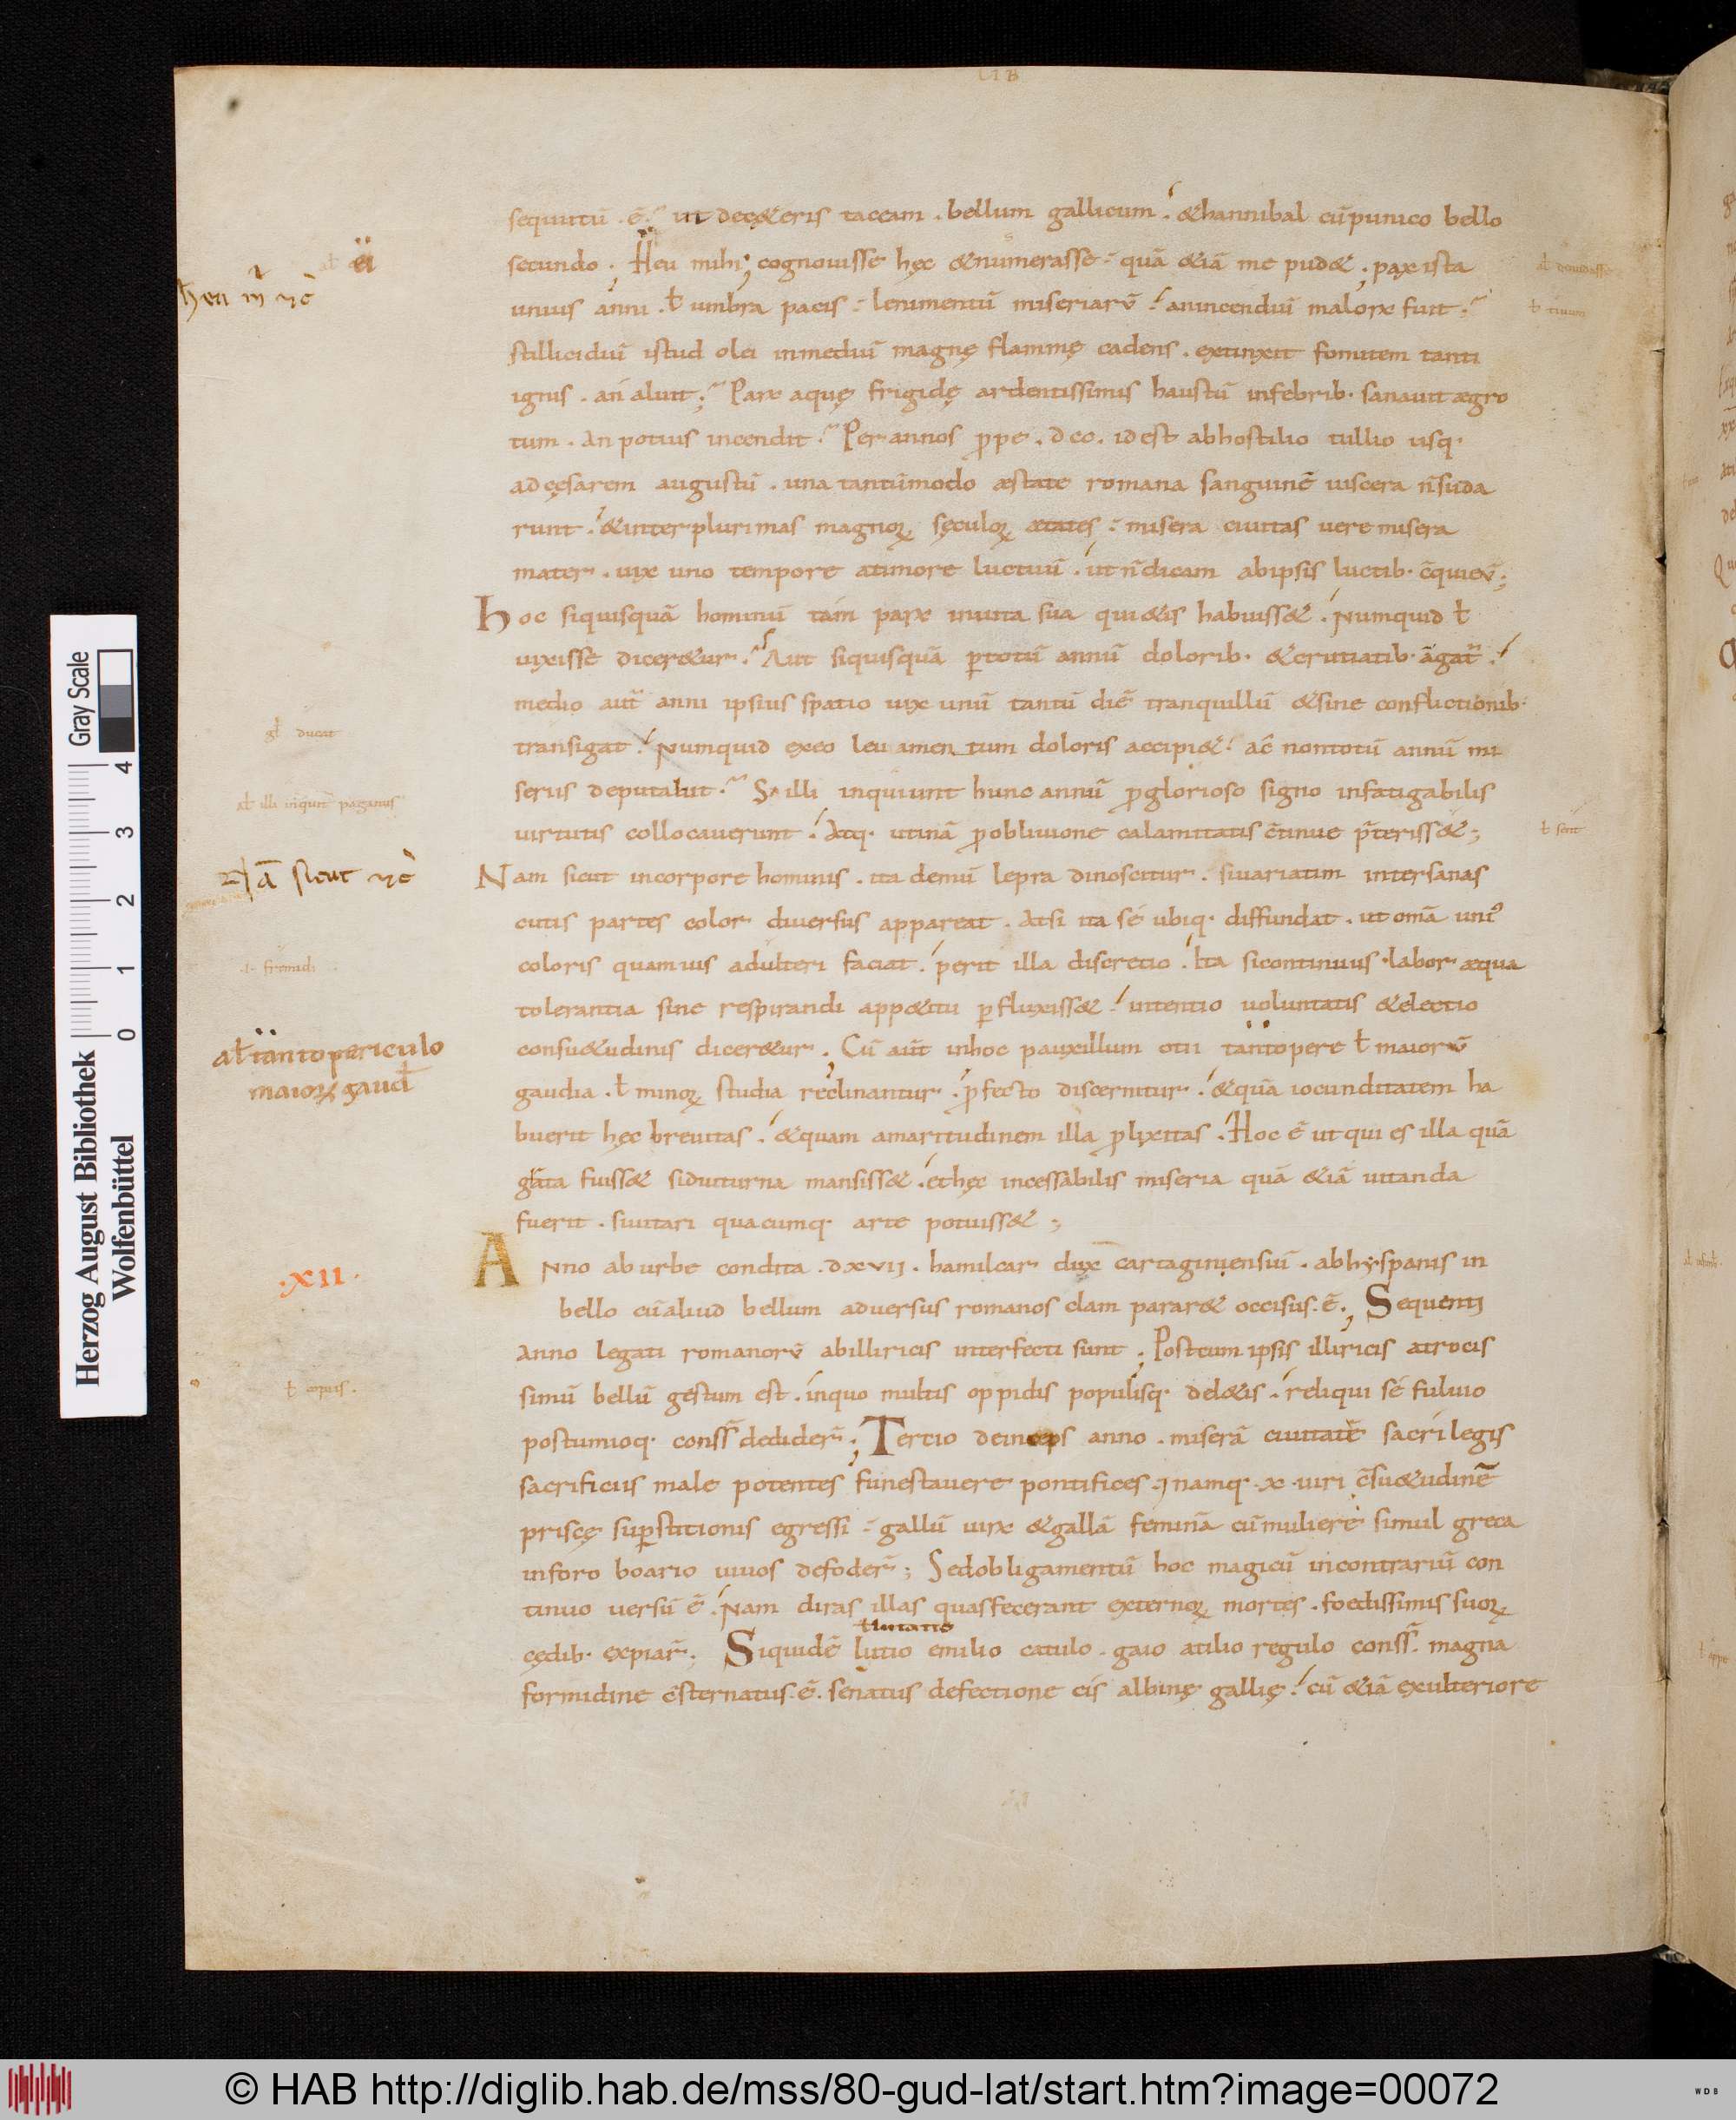 LIB
sequutū · ē · ut dece&eris taceam · bellum gallicum · &hannibal cūpunico bello
secundo ; Heu mihi ; cognouisse hęc &numerasse · quā &iā me pud& ; pax ista
unius anni · ƚ umbra pacis · lenimentū miseriarū · anincendiū malorx fuit ·
stillicidiū istud olei inmediū magnę flammę cadens · extinxit fomitem tanti
ignis · an aluit ; Parx aquę frigidę ardentissimis haustū infebrib· sanauit ægro
tum · an potius incendit · Per annos ꝓpe · dcc · idest abhostilio tullio usq·
adcęsarem augustū · una tantūmodo æstate romana sanguinē uiscera n̄suda
runt · &inter plurimas magnoꝝ sęculoꝝ ætates · misera ciuitas uere misera
mater · uix uno tempore atimore luctuū · ut n̄dicam abipsis luctib· c̄quieū ;
hoc siquisquā hominū tam parx inuita sua qui&is habuiss& · Numquid ƚ
uixisse dicer&ur · Aut siquisquā ꝑtotū annū dolorib· &cruciatib· āgat̄ ·
medio aut̄ anni ipsius spatio uix unū tantū diē tranquillū &sine conflictionib·
transigat · Numquid exeo leuamen tum doloris accipi& · ac̄ nontotū annū mi
seriis deputabit · S& illi inquiunt hunc annū ꝓglorioso signo infatigabilis
uirtutis collocauerunt · Atq· utinā ꝓobliuione calamitatis c̄tinue p̄teriss& ;
Nam sicut incorpore hominis · ita demū lepra dinoscitur · siuariatim intersanas
cutis partes color diuersus appareat · Atsi ita sé ubiq· diffundat · ut omā uni᾽
coloris quamuis adulteri faciat · perit illa discretio · Ita sicontinuus labor æqua
tolerantia sine respirandi app&itu ꝑfluxiss& · intentio uoluntatis &electio
consu&udinis dicer&ur ; Cū aut̄ inhoc pauxillum otii tantopere ƚ maiorū
gaudia · ƚ minoꝝ studia reclinantur · ꝓfecto discernitur · &quā iocunditatem ha
buerit hęc breuitas · &quam amaritudinem illa ꝓlixitas · Hoc ē ut quies illa quā
grata fuiss& sidiuturna mansiss& · ethęc incessabilis miseria quā &iā uitanda
fuerit · siuitari quacumq· arte potuiss& ;
ANno ab urbe condita · dxvii · hamilcar dux cartaginiensiū · abhyspanis in
bello cūaliud bellum aduersus romanos clam parar& occisus · ē · ; Sequenti
anno legati romanorū abilliricis interfecti sunt ; Postcum ipsis illiricis atrocis
simū bellū gestum est · inquo multis oppidis populisq· del&is · reliqui sé fuluio
postumioq· conss̄ dedider̄ ; Tercio deinceps anno · miserā ciuitatē sacrilegis
sacrificiis male potentes funestauere pontifices · Namq· x · uiri c̄su&udinē
priscę suꝑstitionis egressi · gallū uirx &gallā feminā cūmuliere simul greca
inforo boario uiuos defoder̄ ; Sedobligamentū hoc magicū incontrariū con
tinuo uersū ē · Nam diras illas quasfecerant externoꝝ mortes · foedissimis suoꝝ
ƚ lutatio
cędib· expiar̄ ; Siquidē lutio emilio catulo · gaio atilio regulo conss̄ · magna
formidine c̄sternatus · ē · senatus defectione cis albinę gallię · cū &iā exulteriore
heu m̄
gƚ ducit
aƚ illi inquit paganus
sicut
aƚ tanto periculo
maioꝝ gaud̄
·XII·
Gray Scale
0 1 2 3 4
Herzog August Bibliothek
Wolfenbüttel
© HAB http://diglib.hab.de/mss/80-gud-lat/start.htm?image=00072
WDB